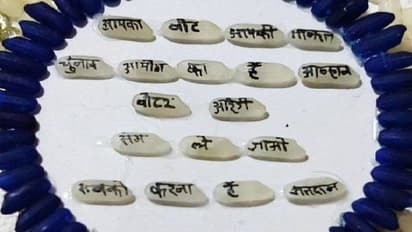 आपका वोट आपकी ताकत
चुनाव आयोग का है आव्हान
वोटर
संग ले जाओ
सबको करना है मतदान